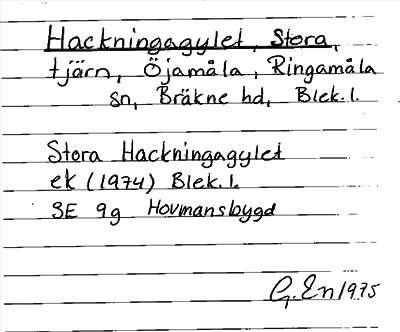 Hackningagylet, Stora,
tjärn, Öjamåla, Ringamåla
sn, Bräkne hd, Blek.l.
Stora Hackningagylet
ek (1974) Blek.l.
3E 9g Hovmansbygd
G. En 1975